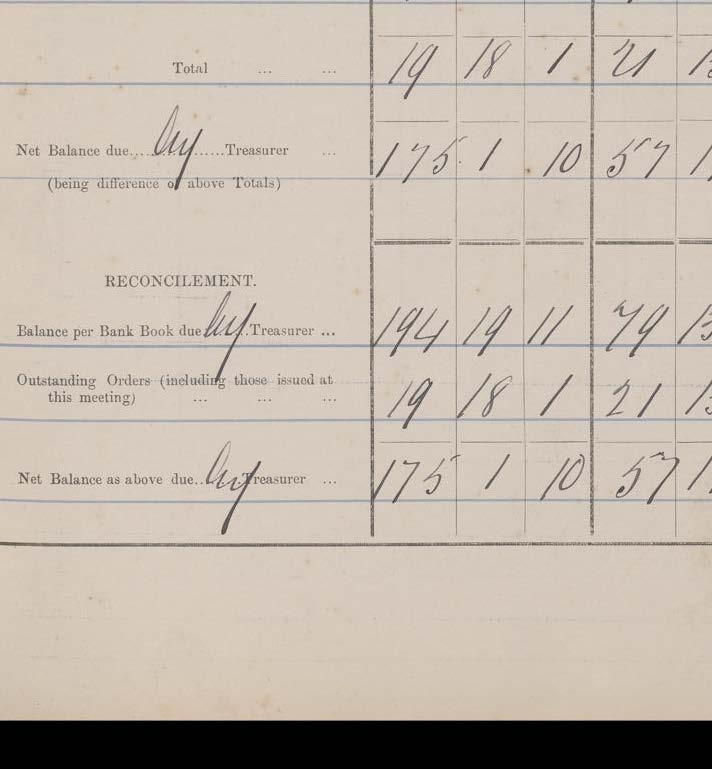 Total ... ... 19 18 1 21
Net Balance due.....by......Treasurer ... 175 1 10 57
(being difference of above Totals)
RECONCILEMENT.
Balance per Bank Book due by Treasurer ... 194 19 11 79
Outstanding Orders (including those issued at
this meeting) ... ... ... 19 18 1 21
Net Balance as above due..by Treasurer ... 175 1 10 57